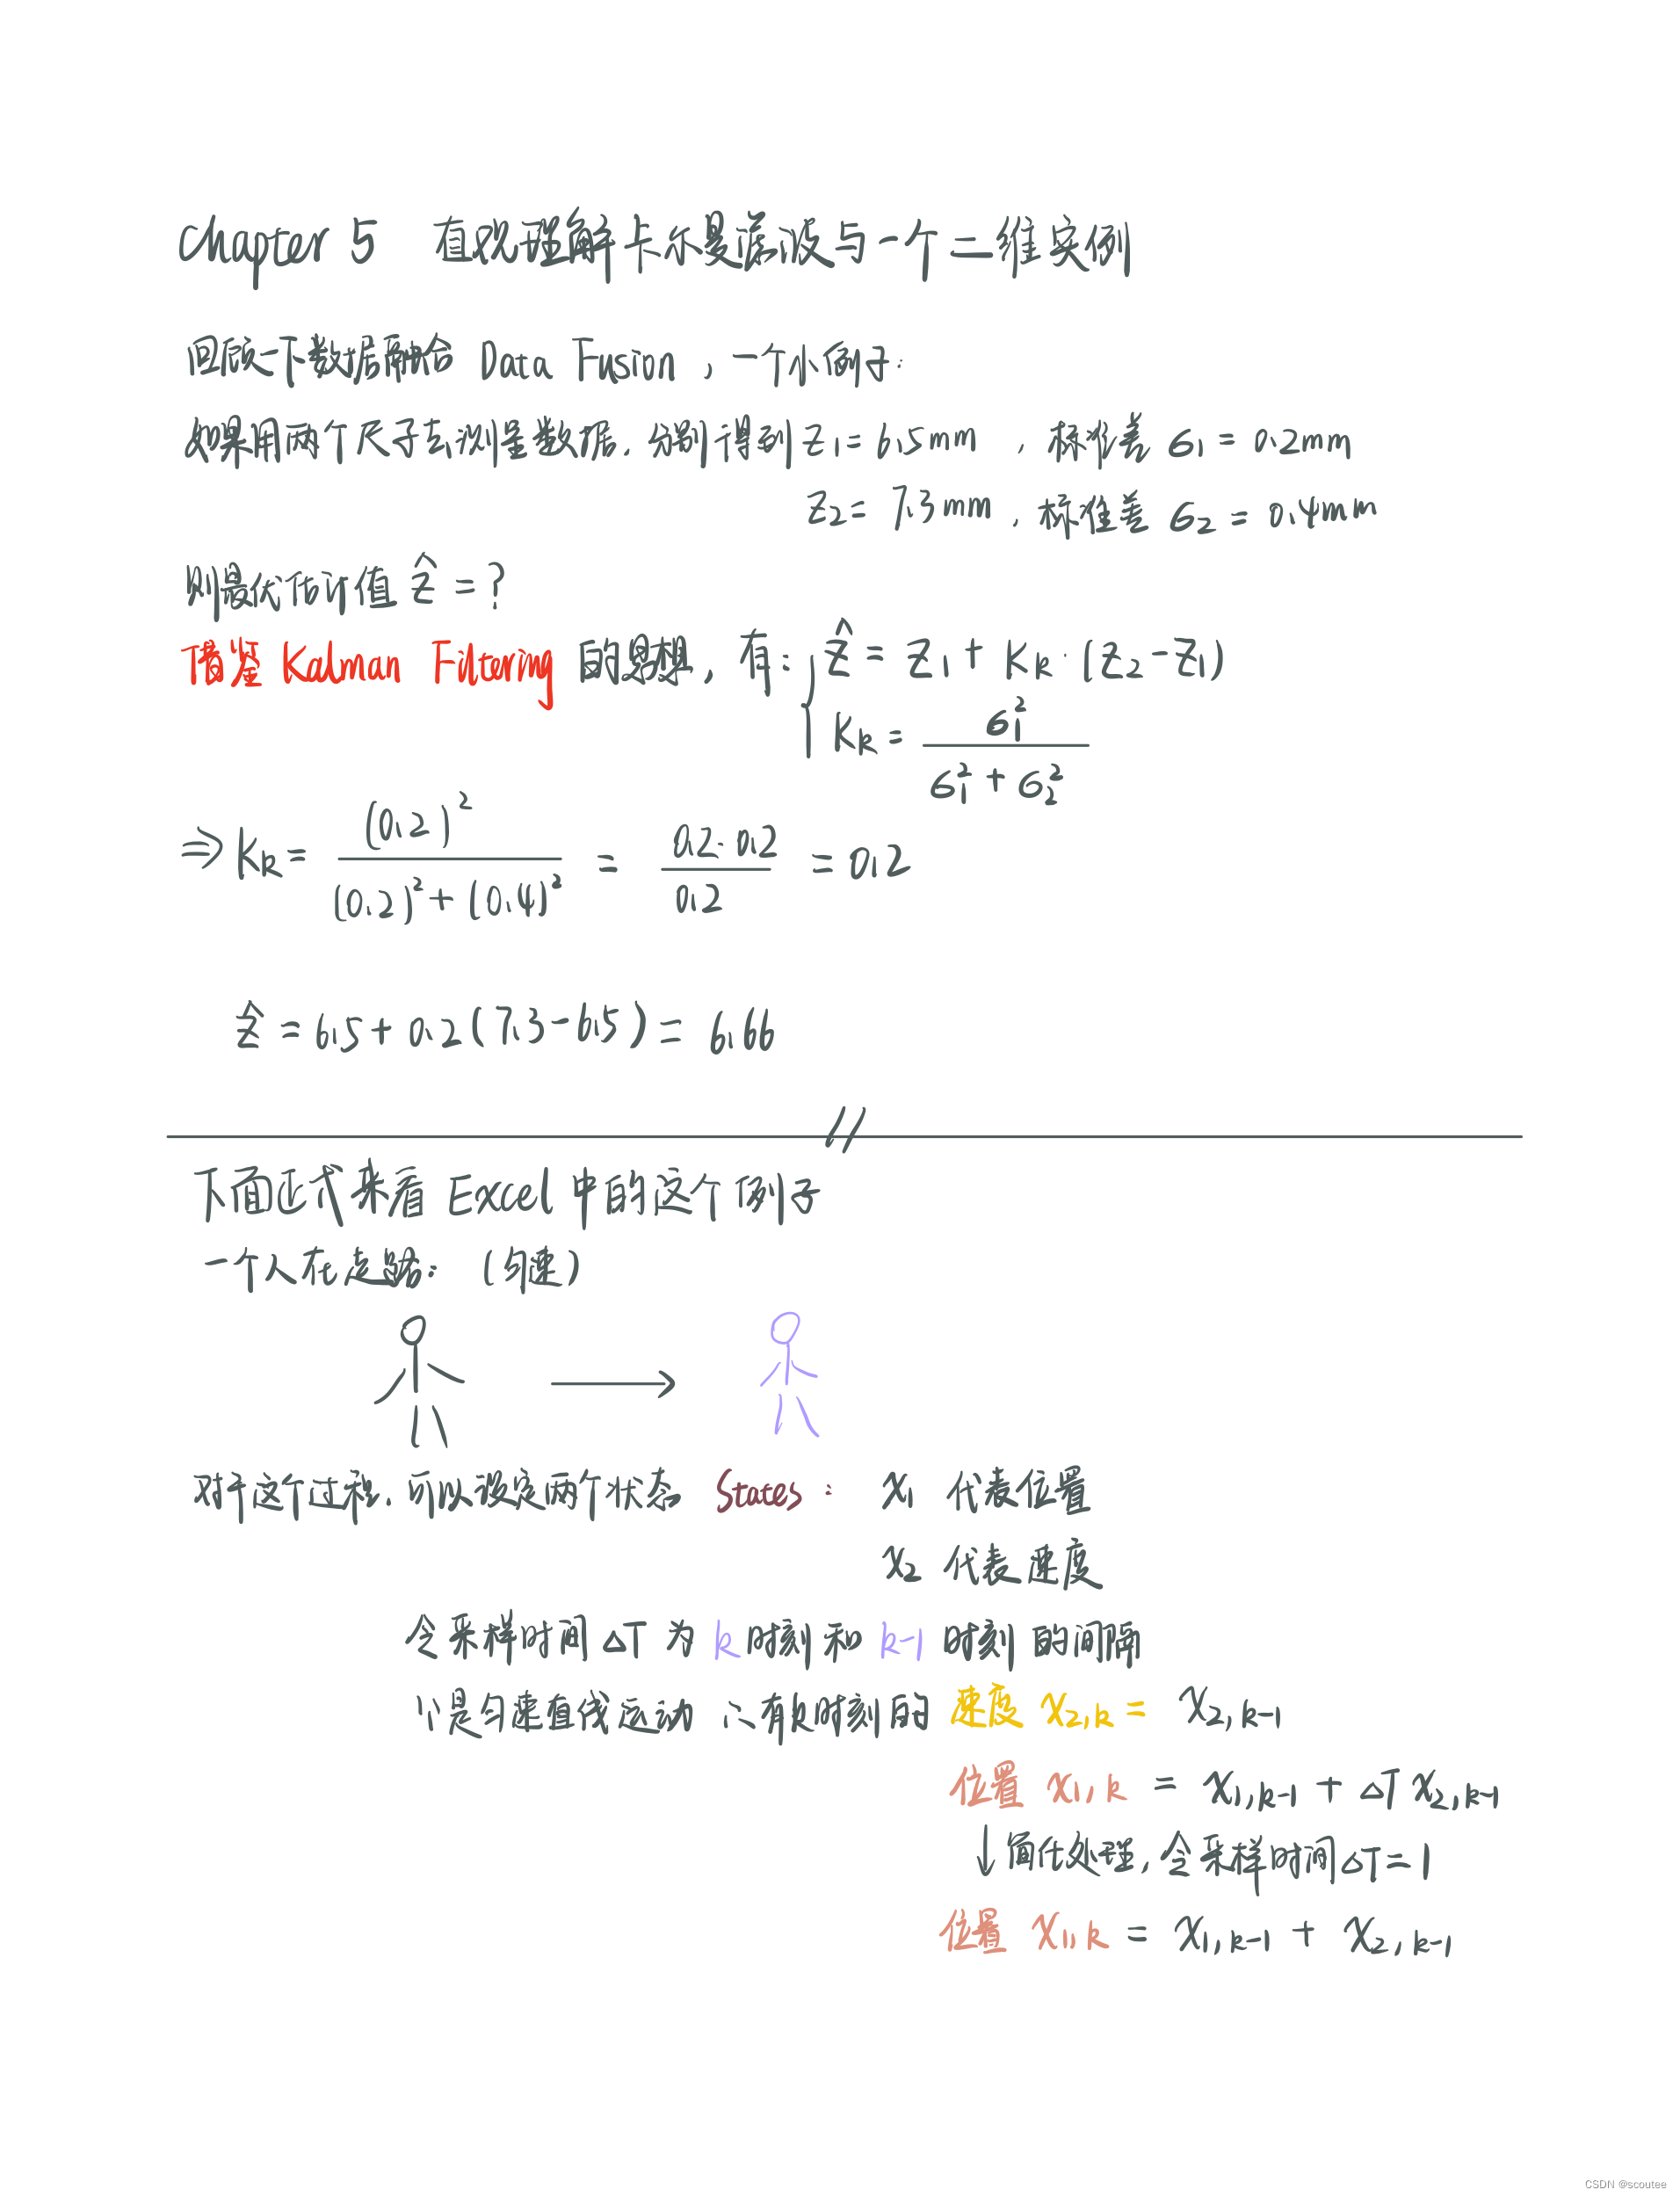 Chapter 5 直观理解卡尔曼滤波与一个二维实例
回顾一下数据融合 Data Fusion , 一个小例子:
如果用两个尺子去测量数据, 分别得到 z₁ = 6.5mm , 标准差 σ₁ = 0.2mm
z₂ = 7.3mm , 标准差 σ₂ = 0.4mm
则最优估计值 ẑ = ?
借鉴 Kalman Filtering 的思想, 有: { ẑ = z₁ + Kₖ · (z₂ - z₁)
Kₖ = σ₁² / (σ₁² + σ₂²)
⇒ Kₖ = (0.2)² / ((0.2)² + (0.4)²) = 0.2·0.2 / 0.2 = 0.2
ẑ = 6.5 + 0.2(7.3 - 6.5) = 6.66
下面正式来看 Excel 中的这个例子
一个人在走路: (匀速)
对于这个过程, 可以设定两个状态 States : x₁ 代表位置
x₂ 代表速度
令采样时间 ΔT 为 k 时刻和 k-1 时刻的间隔
∵是匀速直线运动 ∴有k时刻的 速度 x₂,ₖ = x₂,ₖ₋₁
位置 x₁,ₖ = x₁,ₖ₋₁ + ΔT x₂,ₖ₋₁
↓ 简化处理, 令采样时间 ΔT = 1
位置 x₁,ₖ = x₁,ₖ₋₁ + x₂,ₖ₋₁
CSDN @scoutee